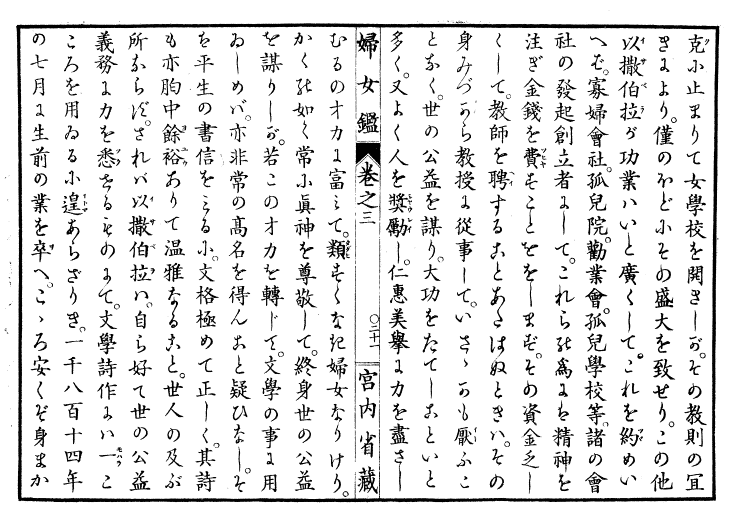 克に止まりて女學校を開きしが。その教則の宜
きより。僅のほどにその盛大を致せり。この他
以撒伯拉が功業ハいと廣くして。これを約めい
へば。寡婦會社。孤兒院。勸業會。孤兒學校等。諸の會
社の發起創立者にして。これらの爲には精神を
注ぎ金錢を費すことををしまず。その資金乏し
くして。教師を聘することあたはぬときハ。その
身みづから教授に從事して。いさゝかも厭ふこ
となく。世の公益を謀り。大功をたてしこといと
多く。又よく人を奬勵し。仁惠美擧に力を盡さし
婦女鑑 卷之三 〇三十一 宮内省藏
むるの才力に富みて。類すくなき婦女なりけり。
かくの如く常に眞神を尊敬して。終身世の公益
を謀りしが。若この才力を轉じて。文學の事に用
ゐしめバ。亦非常の高名を得んこと疑ひなし。そ
を平生の書信をみるに。文格極めて正しく。其詩
も亦胸中餘裕ありて温雅なること。世人の及ぶ
所ならず。されバ以撒伯拉ハ。自ら好て世の公益
義務に力を悉せるものにて。文學詩作にハ一こ
ころを用ゐるに遑あらざりき。一千八百十四年
の七月に生前の業を卒へ。こゝろ安くぞ身まか